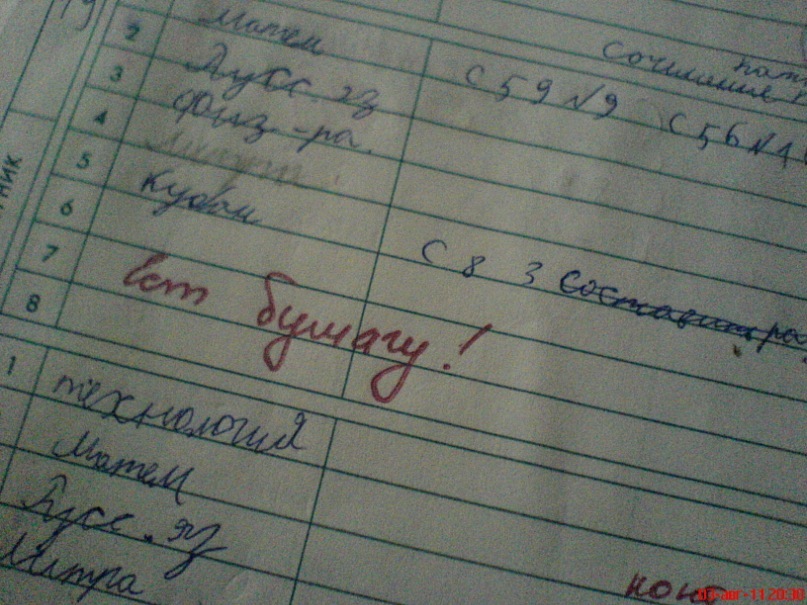 2 Матем
Сочинение
3 Русс. яз С 59 №9 С 56 №
4 физ-ра.
5
6 Кубан
7 С 8 3 составит
8 Ест бумагу!
НИК
1 технология
Матем
Русс. яз
Литра